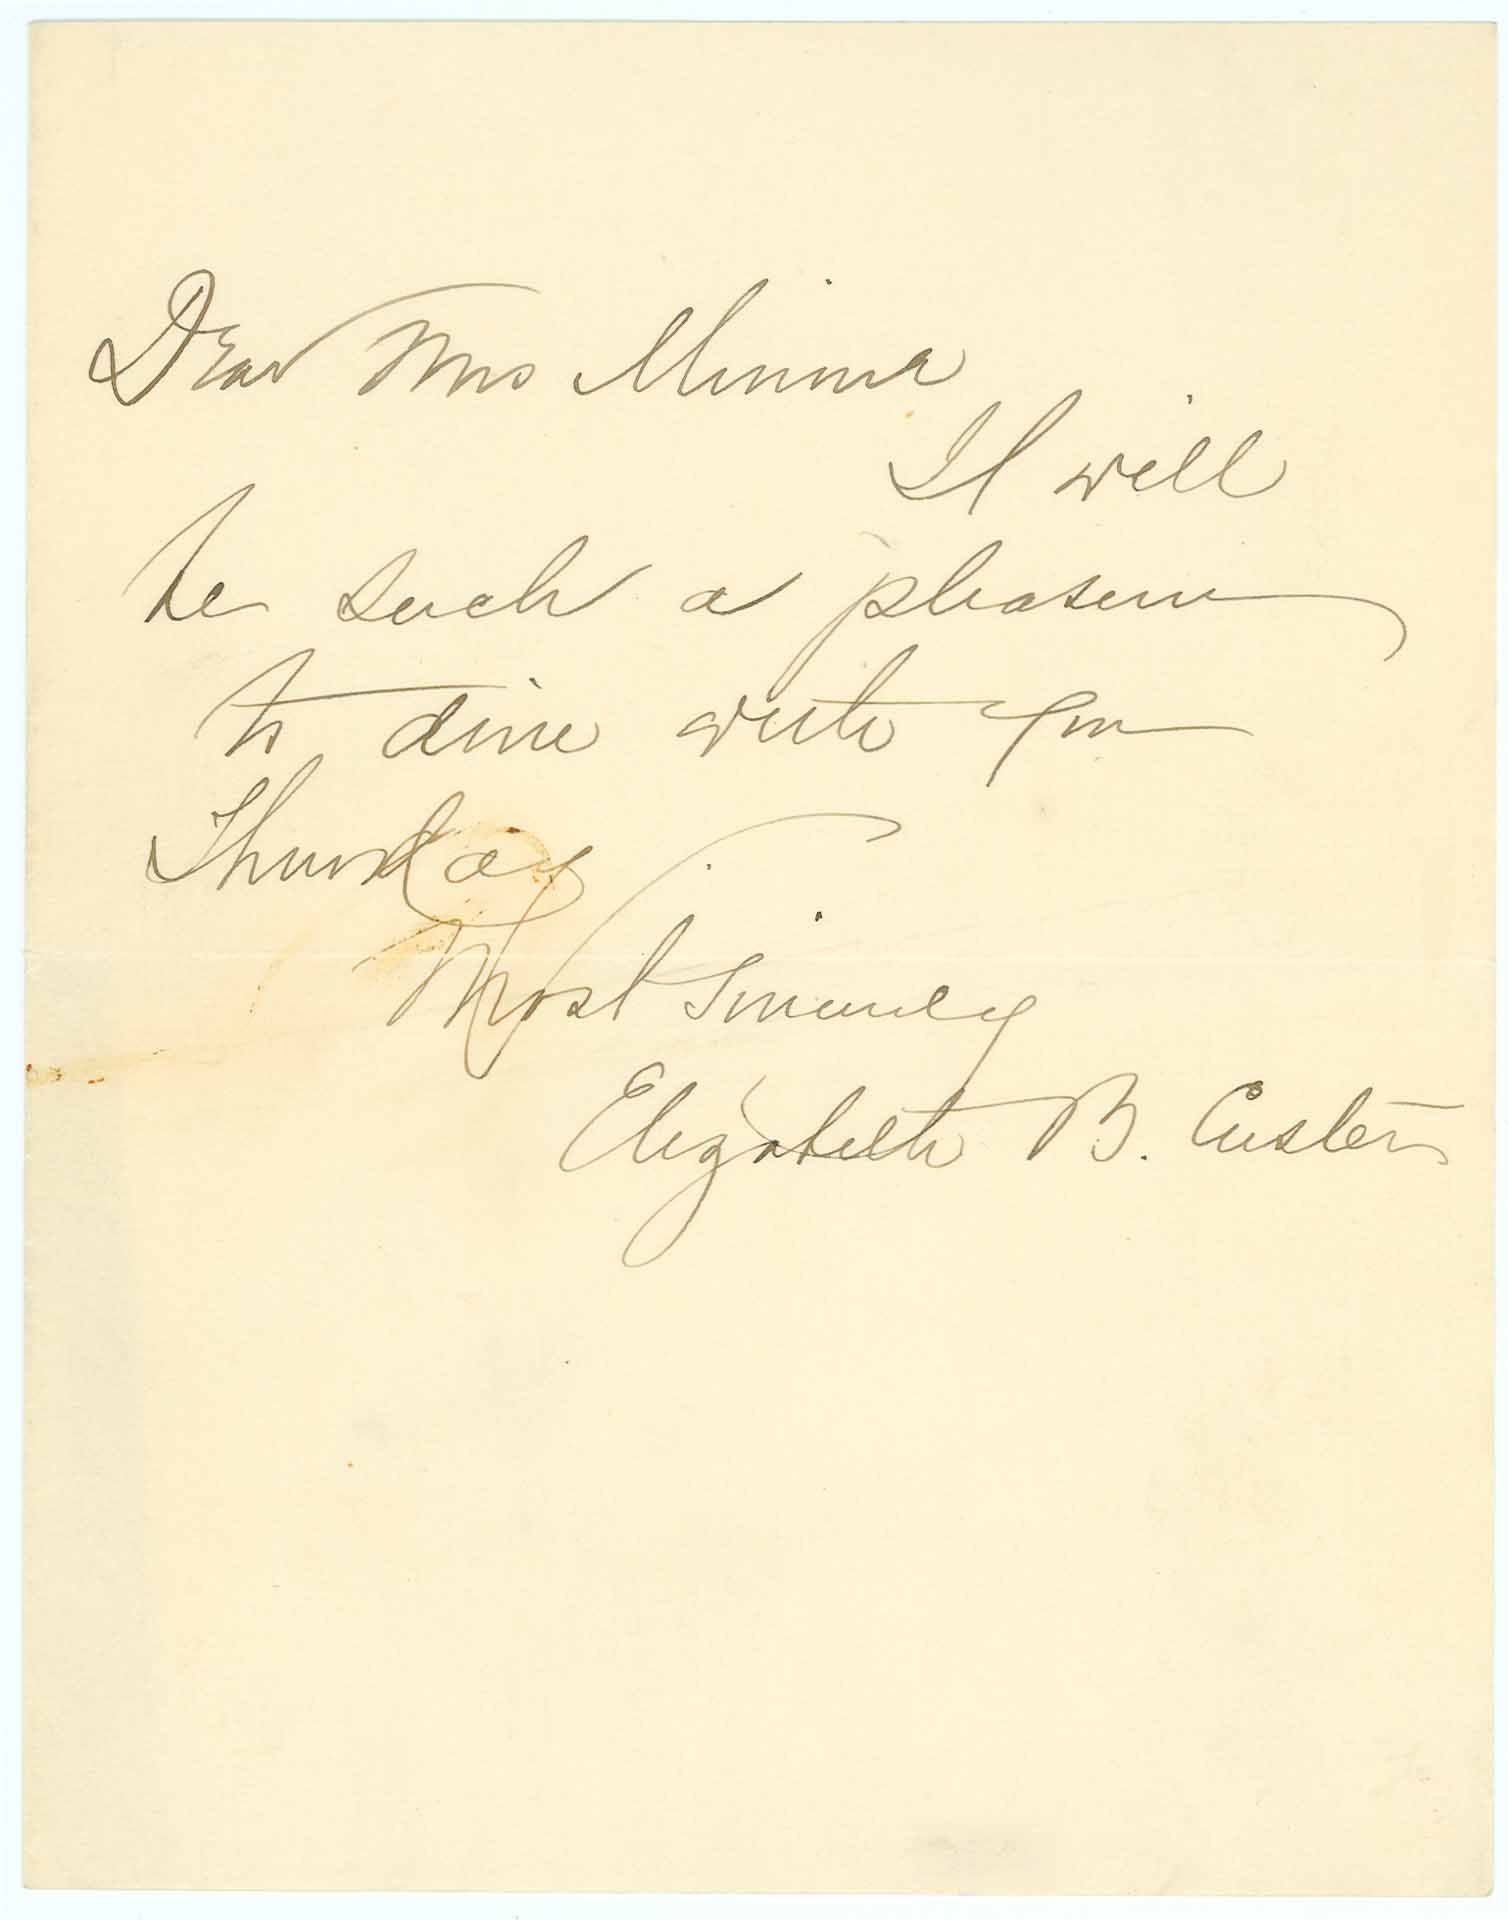 Dear Mrs
It will
be such a pleasure
to dine with you
Thursday
Most Sincerely
Elizabeth B. Custer